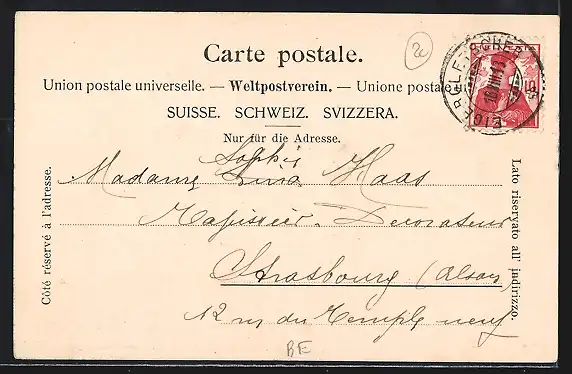 Carte postale.
20
Union postale universelle. — Weltpostverein. — Unione postale
SUISSE. SCHWEIZ. SVIZZERA.
Nur für die Adresse.
EIGERGLETSCHER
10
Côté réservé à l'adresse.
Lato riservato all' indirizzo.
Sophie
Madame Haas
Tapissier-Decorateur
Strasbourg (Alsace)
12 rue du Temple neuf
BE